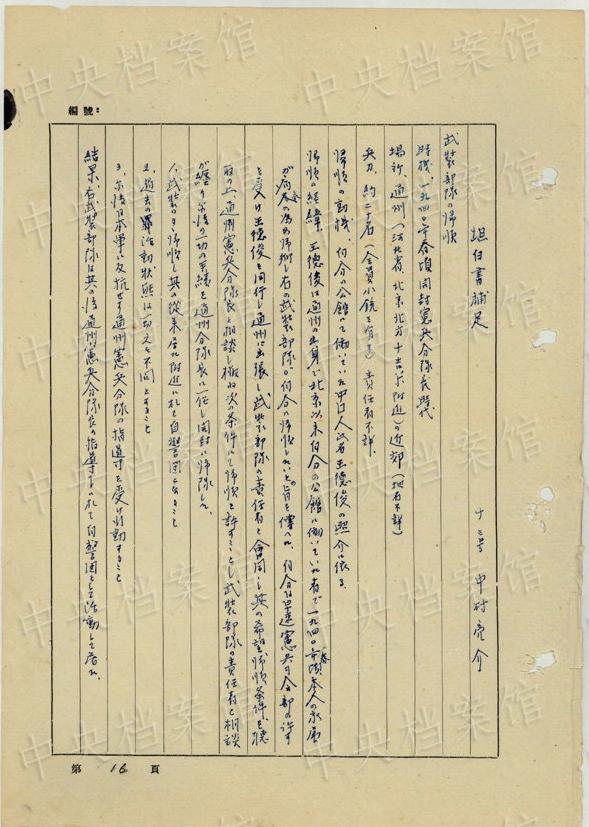 編號：
坦白書補足
十三号 中村亮介
武装部隊の帰順
時機、一九四〇年春頃開封憲兵分隊長時代
場所、通州（河北省、北京北方十吉米附近）の近郊（地名不詳）
兵力、約二十名（全員小銃を有す）責任者不詳
帰順の動機、自分の公館で働いていた中国人 王徳俊の照介に依る、
帰順の経緯、王徳俊は通州の出身で北京以来自分の公館に働いていた者で一九四〇年春頃
が 病 の為め帰郷し右の武装部隊が自分に帰順したいと旨を傳へた、自分は早速憲兵司令部の許す
を受け王徳俊を同行し通州に出張し武装部隊の責任者と會同し其の希望帰順条件を聴
取の上、通州憲兵分隊長と相談し概ね次の条件にて帰順を許すこととし武装部隊の責任者と相談
が纏り其後一切の手続を通州分隊長に一任し開封に帰隊した、
1、武装のまま帰順し其の従来居た附近に於て自警團となること
2、過去の罪 活動状態は一切之を不問とすること
3、 日本軍に反抗せず通州憲兵分隊の指導を受け行動すること
結果、右武装部隊は其の後通州憲兵分隊長の指導 に入れて自警團として活動して居た、
第 16 頁
中央档案馆